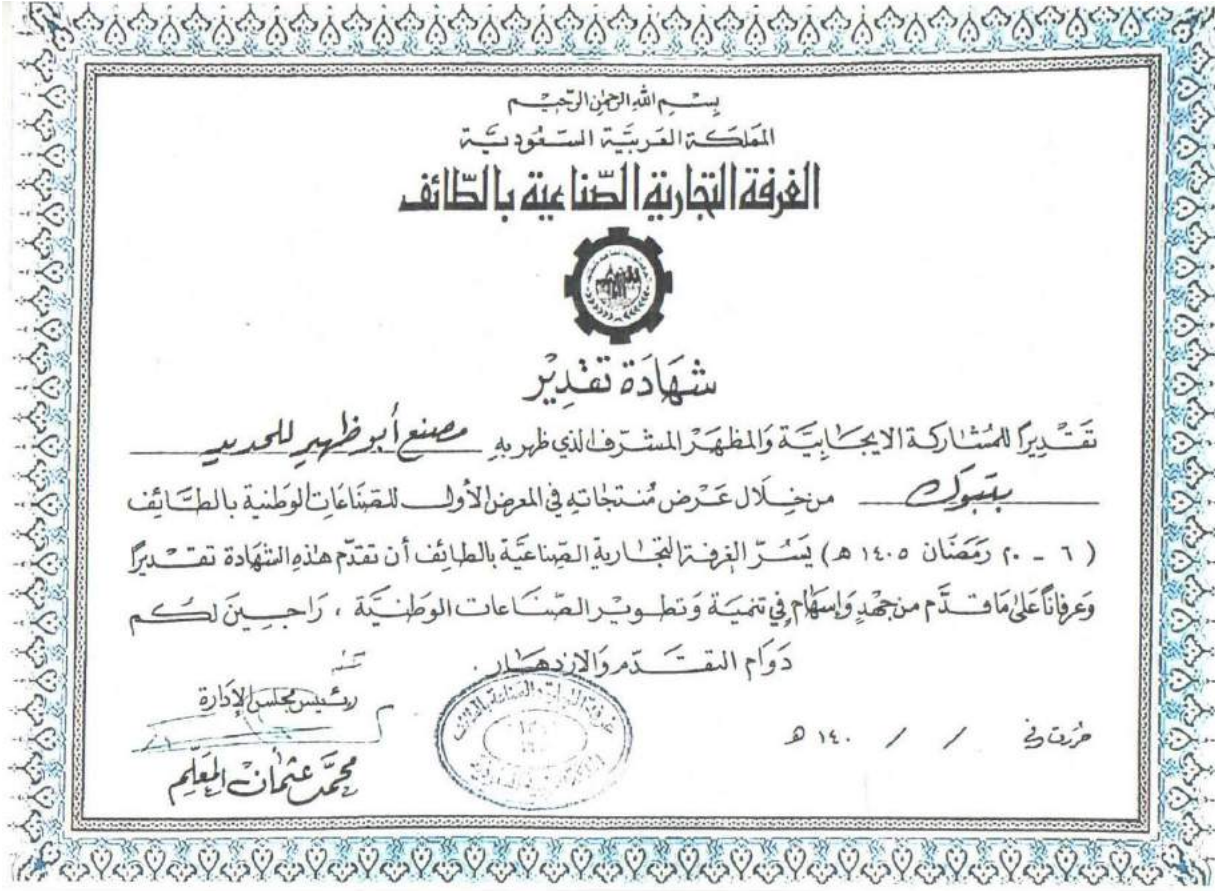 بسم الله الرحمن الرحيم
المملكة العربية السعودية
الغرفة التجارية الصناعية بالطائف
شهادة تقدير
تقديرًا للمشاركة الايجابية والمظهر المشرف الذي ظهر به مصنع أبو ظهير للحديد
بتبوك من خلال عرض منتجاته في المعرض الأول للصناعات الوطنية بالطائف
( ٦ - ٢٠ رمضان ١٤٠٥ هـ ) يسر الغرفة التجارية الصناعية بالطائف أن تقدم هذه الشهادة تقديرًا
وعرفانًا على ما قدم من جهد وإسهام في تنمية وتطوير الصناعات الوطنية ، راجين لكم
دوام التقدم والازدهار .
رئيس مجلس الإدارة
محمد عثمان المعلم
حررت في / / ١٤٠ هـ